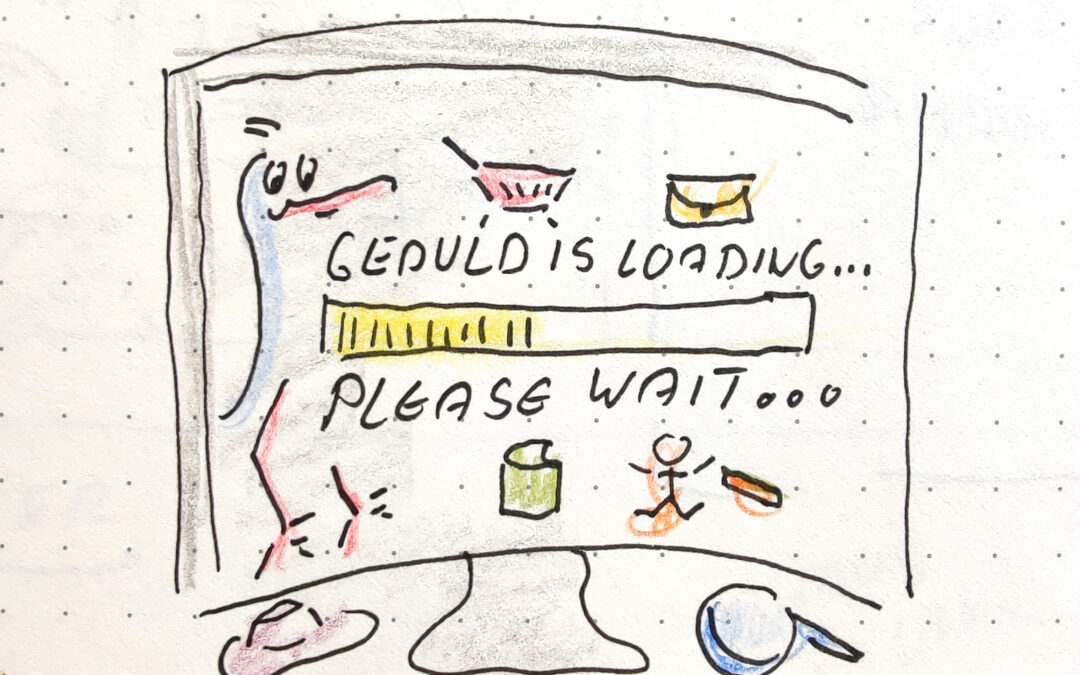 GEDULD IS LOADING...
PLEASE WAIT...